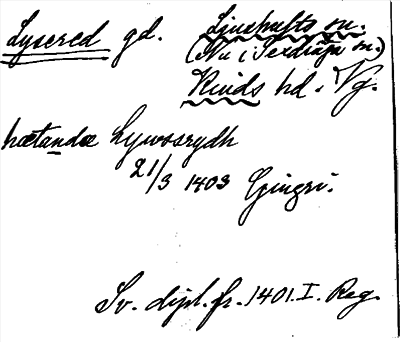 Lysered gd. Ljushults sn.
(Nu i Sexdräga sn.)
Kinds hd. Vg.
hætandæ Lywosrydh
21/3 1403 Gingri.
Sv. dipl. fr. 1401. I. Reg.